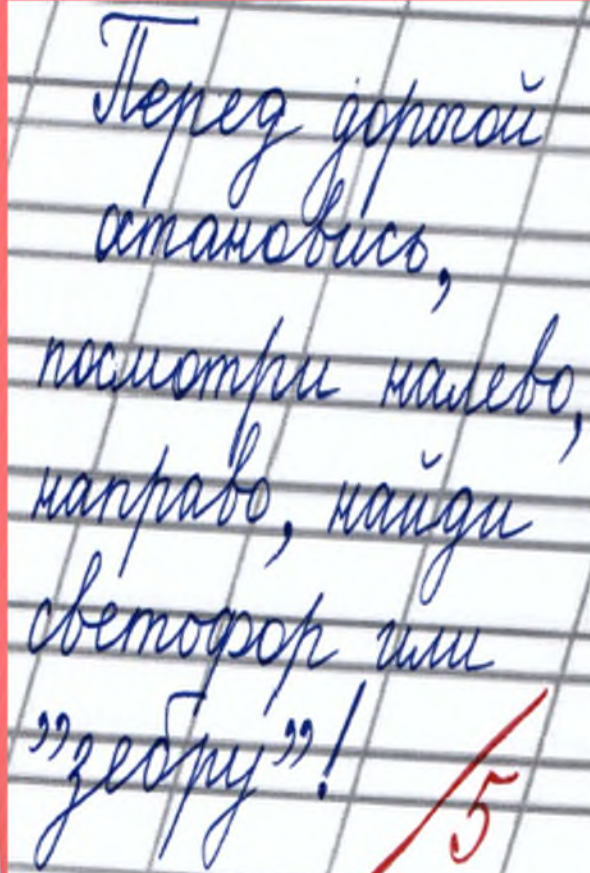 Перед дорогой
остановись,
посмотри налево,
направо, найди
светофор или
”зебру”!
5